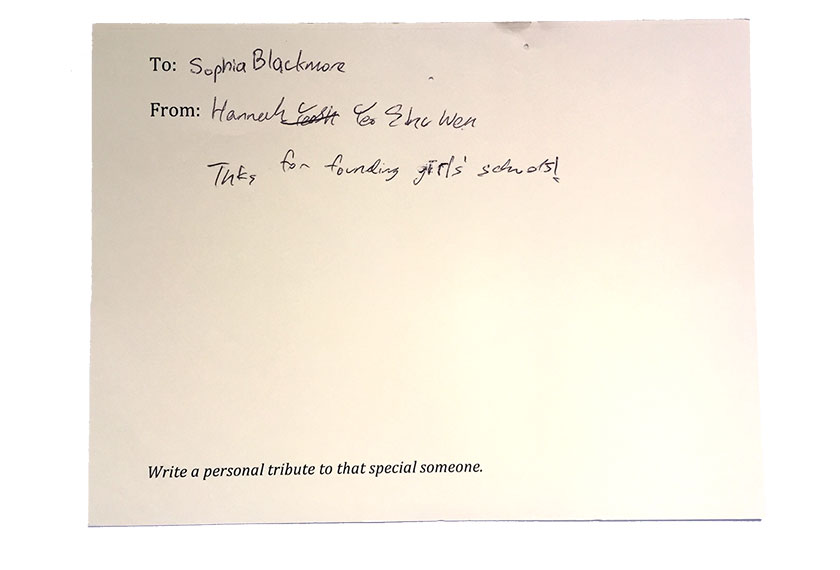 To: Sophia Blackmore
From: Hannah Yeo Wen
Thks for founding girls' schools!
Write a personal tribute to that special someone.